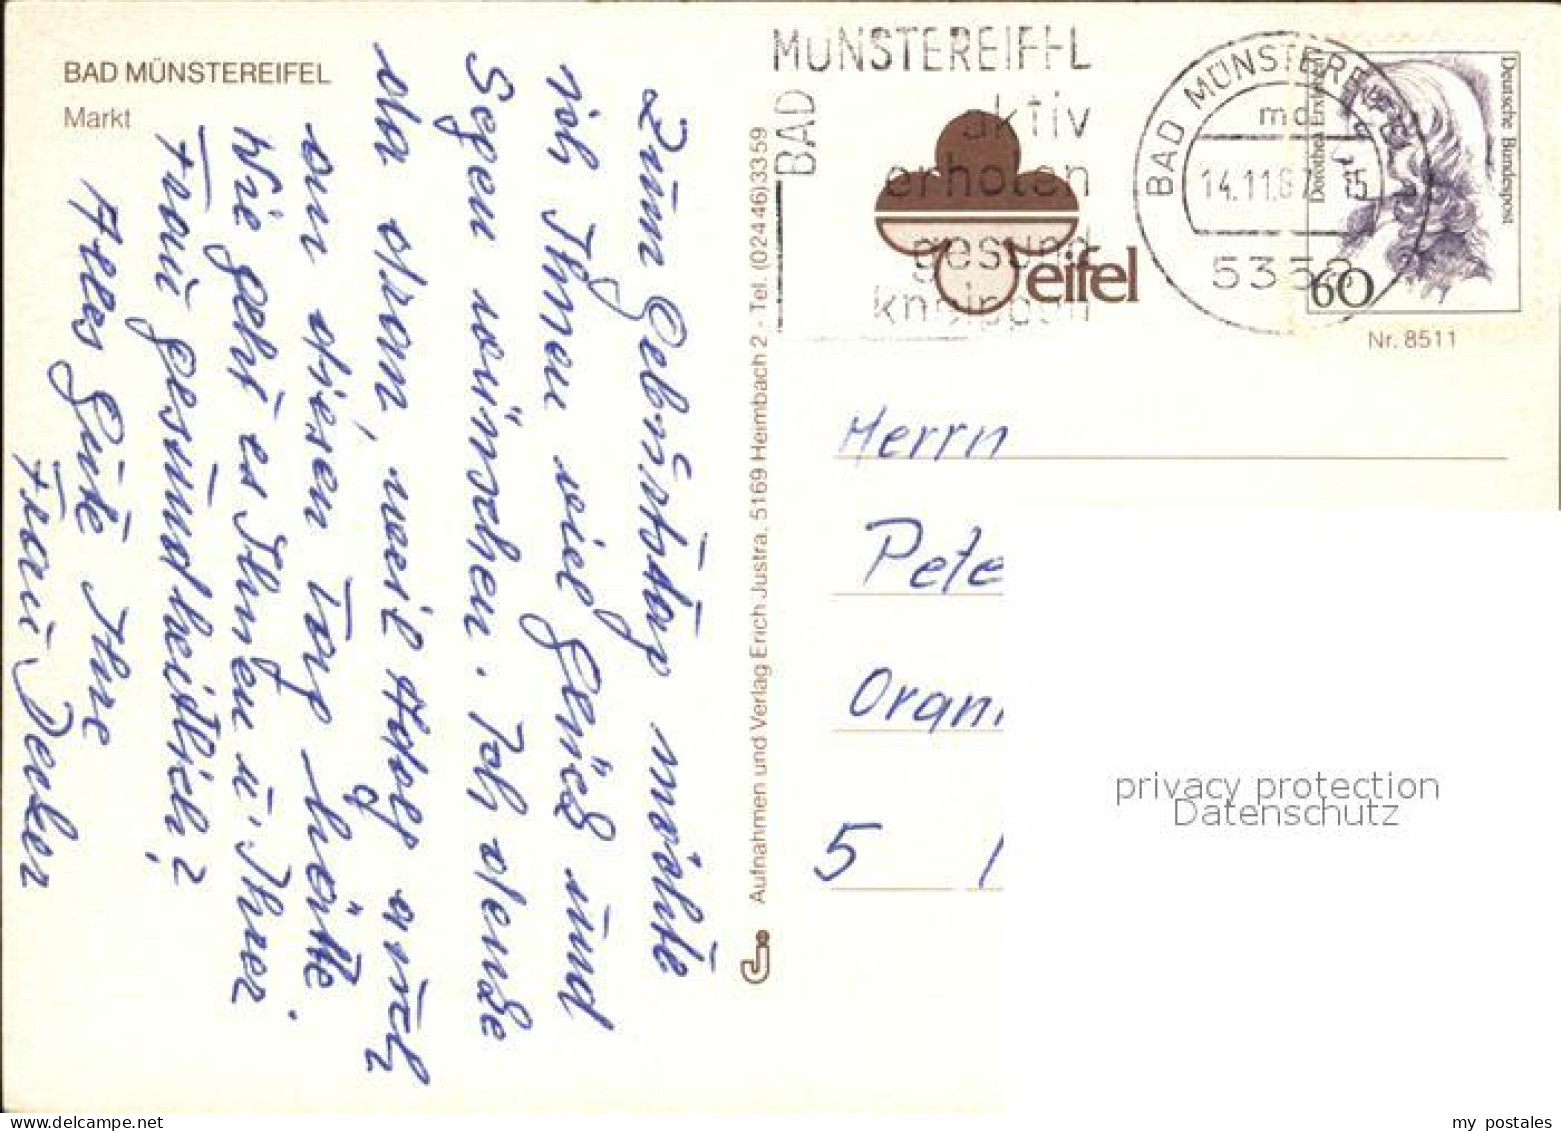 BAD MÜNSTEREIFEL
Markt
Zum Geburtstag möchte
ich Ihnen viel Glück und
Segen wünschen. Ich denke
da dran, weil Adolf auch
an diesen Tag hätte.
Wie geht es Ihnen u. Ihrer
Frau gesundheitlich?
Alles Gute Ihre
Frau Decker
Aufnahmen und Verlag Erich Justra, 5169 Heimbach 2 - Tel. (02446) 3359
BAD
MÜNSTEREIFEL
aktiv
erholen
gesund
kneippen
eifel
BAD MÜNSTEREIFEL
md
14.11.87 15
5358
Deutsche Bundespost
Dorothea Erxleben
60
Nr. 8511
Herrn
Pete
Orani
5 1
privacy protection
Datenschutz
my postales